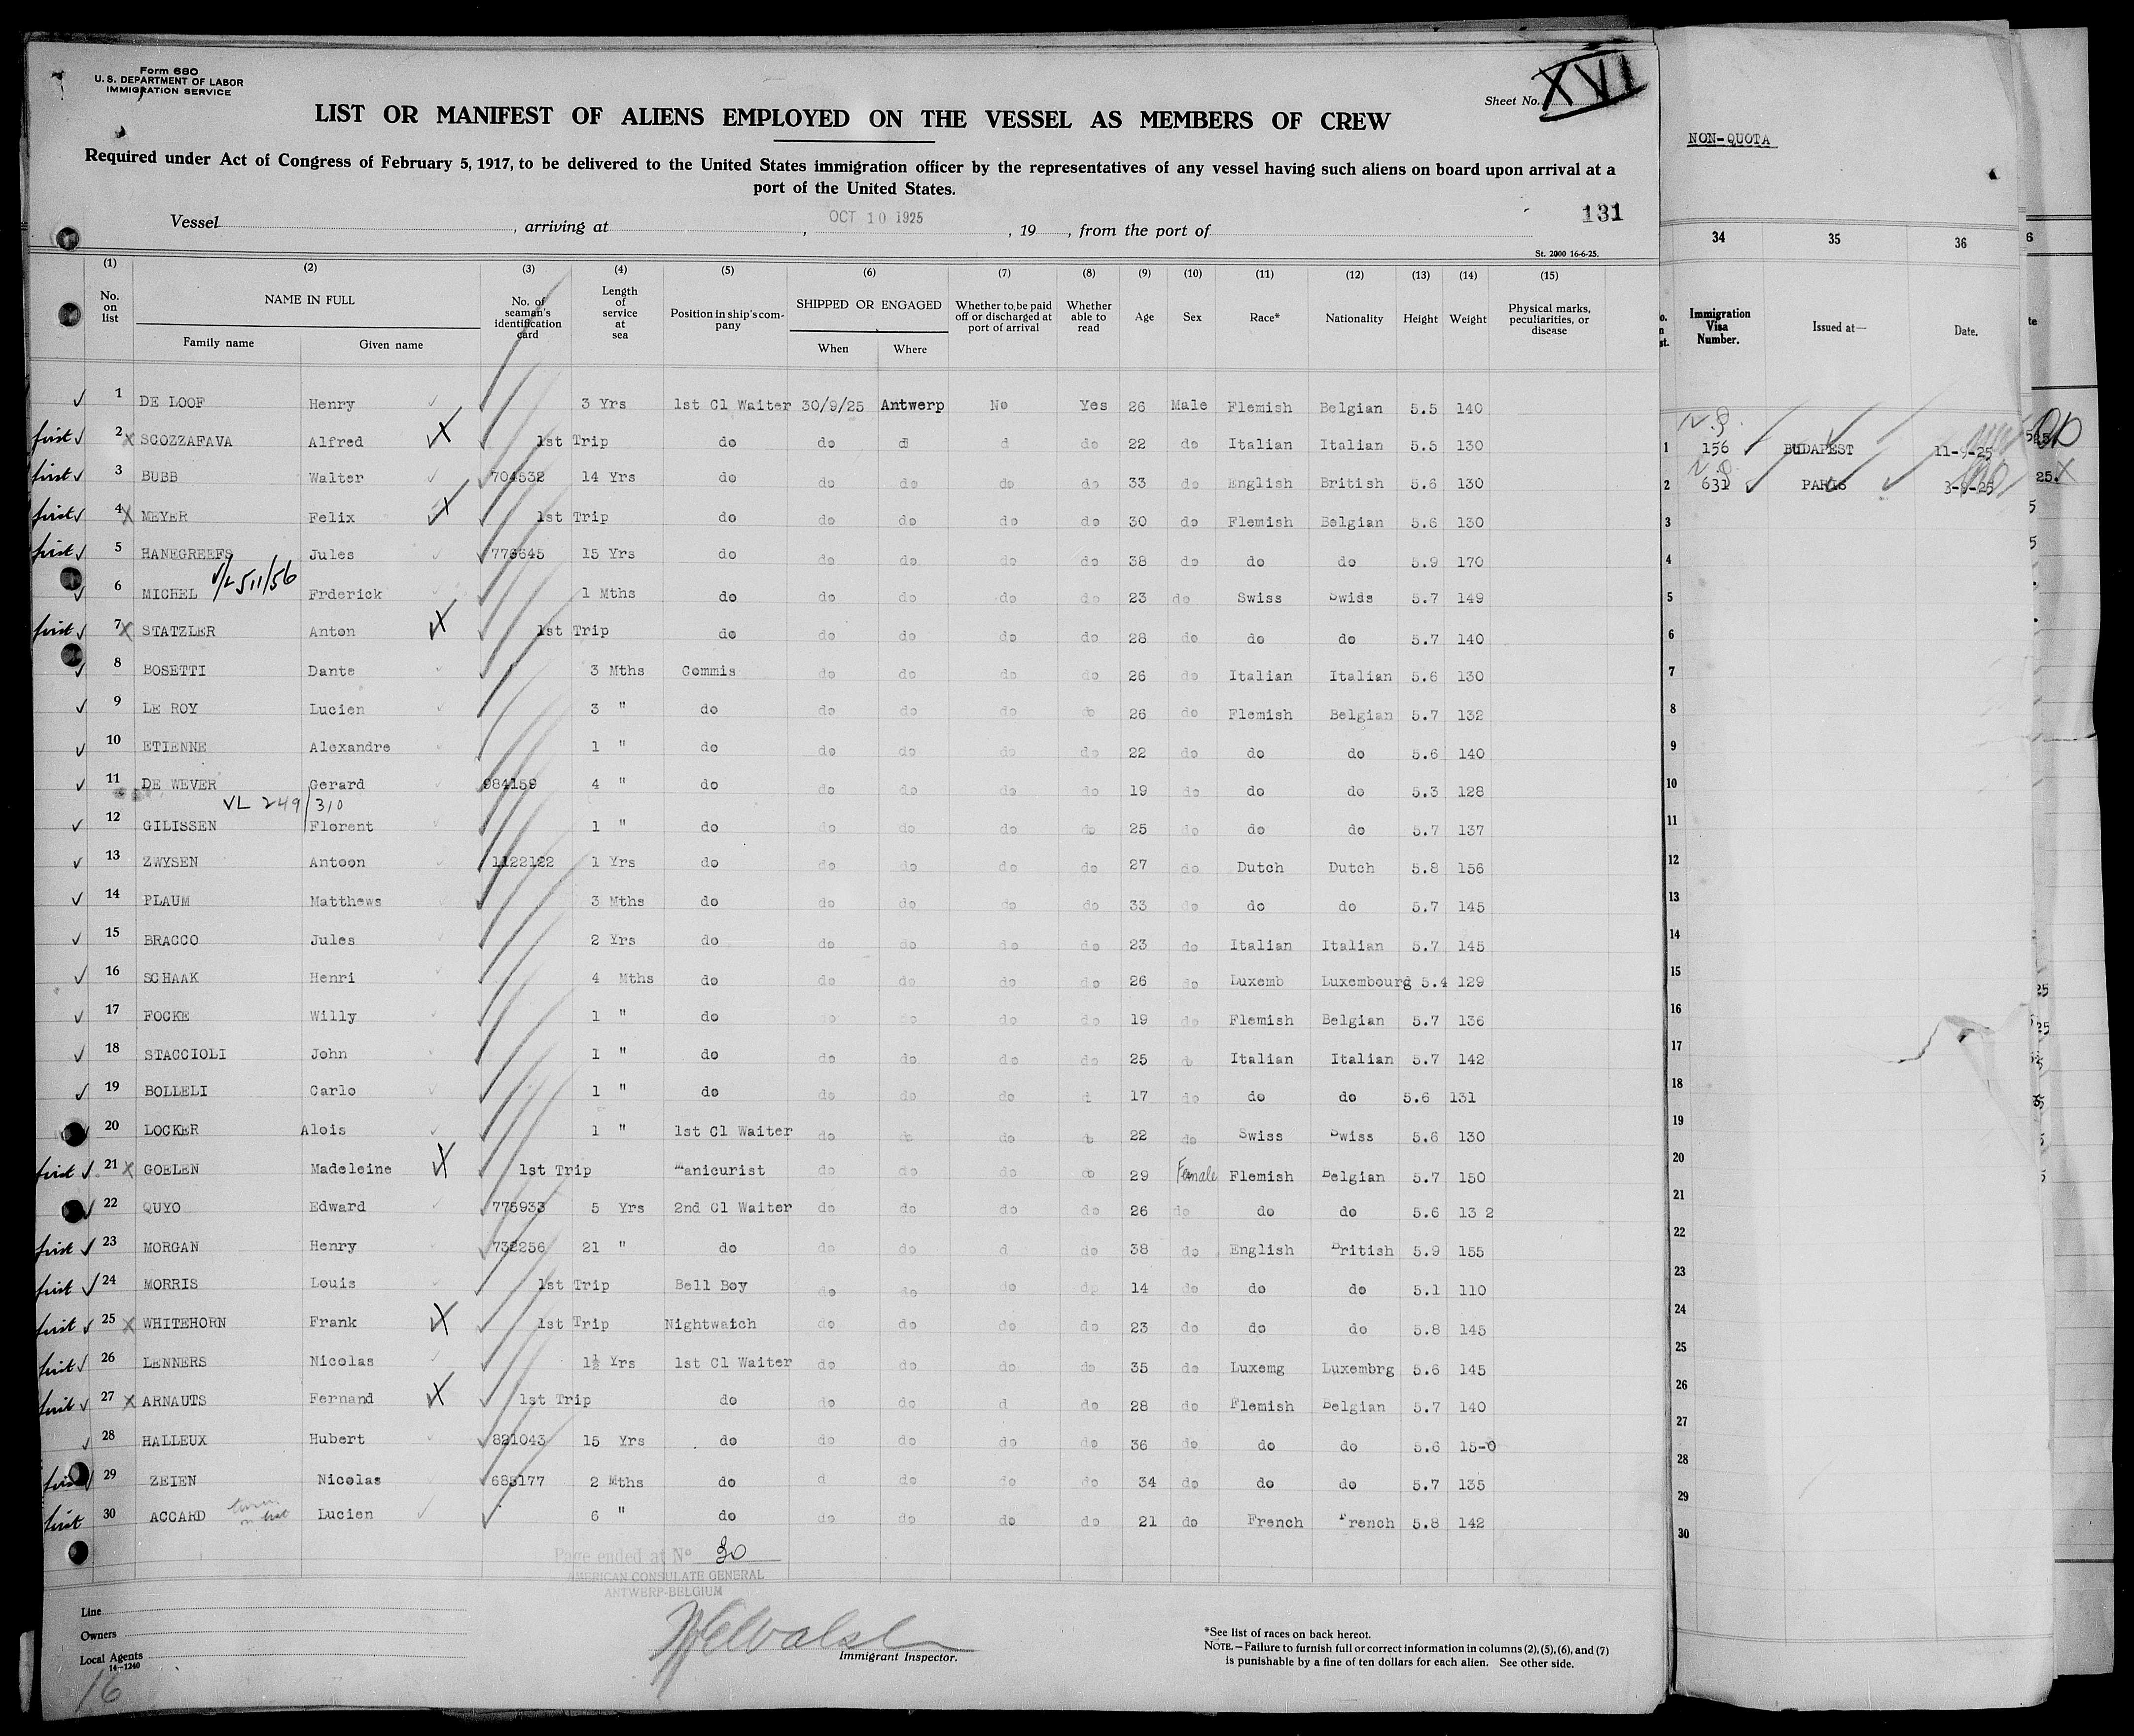 Form 680
U. S. DEPARTMENT OF LABOR
IMMIGRATION SERVICE
Sheet No. XVI
LIST OR MANIFEST OF ALIENS EMPLOYED ON THE VESSEL AS MEMBERS OF CREW
Required under Act of Congress of February 5, 1917, to be delivered to the United States immigration officer by the representatives of any vessel having such aliens on board upon arrival at a
port of the United States.
131
Vessel , arriving at , OCT 10 1925 , 19 , from the port of
St. 2000 16-6-25.
(1) (2) (3) (4) (5) (6) (7) (8) (9) (10) (11) (12) (13) (14) (15)
No. on list NAME IN FULL No. of seaman's identification card Length of service at sea Position in ship's company SHIPPED OR ENGAGED Whether to be paid off or discharged at port of arrival Whether able to read Age Sex Race* Nationality Height Weight Physical marks, peculiarities, or disease
Family name Given name When Where
1 DE LOOF Henry 3 Yrs 1st Cl Waiter 30/9/25 Antwerp No Yes 26 Male Flemish Belgian 5.5 140
first 2 SCOZZAFAVA Alfred 1st Trip do do d d do 22 do Italian Italian 5.5 130
first 3 BUBB Walter 704532 14 Yrs do do do do do 33 do English British 5.6 130
first 4 MEYER Felix 1st Trip do do do do do 30 do Flemish Belgian 5.6 130
first 5 HANEGREEFS Jules 773645 15 Yrs do do do do do 38 do do do 5.9 170
V/L 511/56
6 MICHEL Frderick 1 Mths do do do do do 23 do Swiss Swids 5.7 149
first 7 STATZLER Anton 1st Trip do do do do do 28 do do do 5.7 140
8 BOSETTI Dante 3 Mths Commis do do do do 26 do Italian Italian 5.6 130
9 LE ROY Lucien 3 " do do do do do 26 do Flemish Belgian 5.7 132
10 ETIENNE Alexandre 1 " do do do do do 22 do do do 5.6 140
11 DE WEVER Gerard 984159 4 " do do do do do 19 do do do 5.3 128
VL 249/310
12 GILISSEN Florent 1 " do do do do do 25 do do do 5.7 137
13 ZWYSEN Antoon 1122122 1 Yrs do do do do do 27 do Dutch Dutch 5.8 156
14 PLAUM Matthews 3 Mths do do do do do 33 do do do 5.7 145
15 BRACCO Jules 2 Yrs do do do do do 23 do Italian Italian 5.7 145
16 SCHAAK Henri 4 Mths do do do do do 26 do Luxemb Luxembourg 5.4 129
17 FOCKE Willy 1 " do do do do do 19 do Flemish Belgian 5.7 136
18 STACCIOLI John 1 " do do do do do 25 do Italian Italian 5.7 142
19 BOLLELI Carlo 1 " do do do do d 17 do do do 5.6 131
20 LOCKER Alois 1 " 1st Cl Waiter do do do do 22 do Swiss Swiss 5.6 130
first 21 GOELEN Madeleine 1st Trip Manicurist do do do do 29 Female Flemish Belgian 5.7 150
22 QUYO Edward 775933 5 Yrs 2nd Cl Waiter do do do do 26 do do do 5.6 13 2
first 23 MORGAN Henry 732256 21 " do do do d do 38 do English British 5.9 155
first 24 MORRIS Louis 1st Trip Bell Boy do do do do 14 do do do 5.1 110
first 25 WHITEHORN Frank 1st Trip Nightwatch do do do do 23 do do do 5.8 145
first 26 LENNERS Nicolas 1½ Yrs 1st Cl Waiter do do do do 35 do Luxemg Luxembrg 5.6 145
first 27 ARNAUTS Fernand 1st Trip do do do d do 28 do Flemish Belgian 5.7 140
28 HALLEUX Hubert 821043 15 Yrs do do do do do 36 do do do 5.6 15-0
first 29 ZEIEN Nicolas 685177 2 Mths do d do do do 34 do do do 5.7 135
first 30 ACCARD Lucien 6 " do do do do do 21 do French French 5.8 142
Page ended at No 30
AMERICAN CONSULATE GENERAL
ANTWERP-BELGIUM
Line
Owners
Local Agents
14-1240
16
Immigrant Inspector.
*See list of races on back hereof.
NOTE.—Failure to furnish full or correct information in columns (2), (5), (6), and (7)
is punishable by a fine of ten dollars for each alien. See other side.
NON-QUOTA
34 35 36
Immigration Visa Number. Issued at— Date.
1 156 BUDAPEST
2 631 PARIS
3
4
5
6
7
8
9
10
11
12
13
14
15
16
17
18
19
20
21
22
23
24
25
26
27
28
29
30